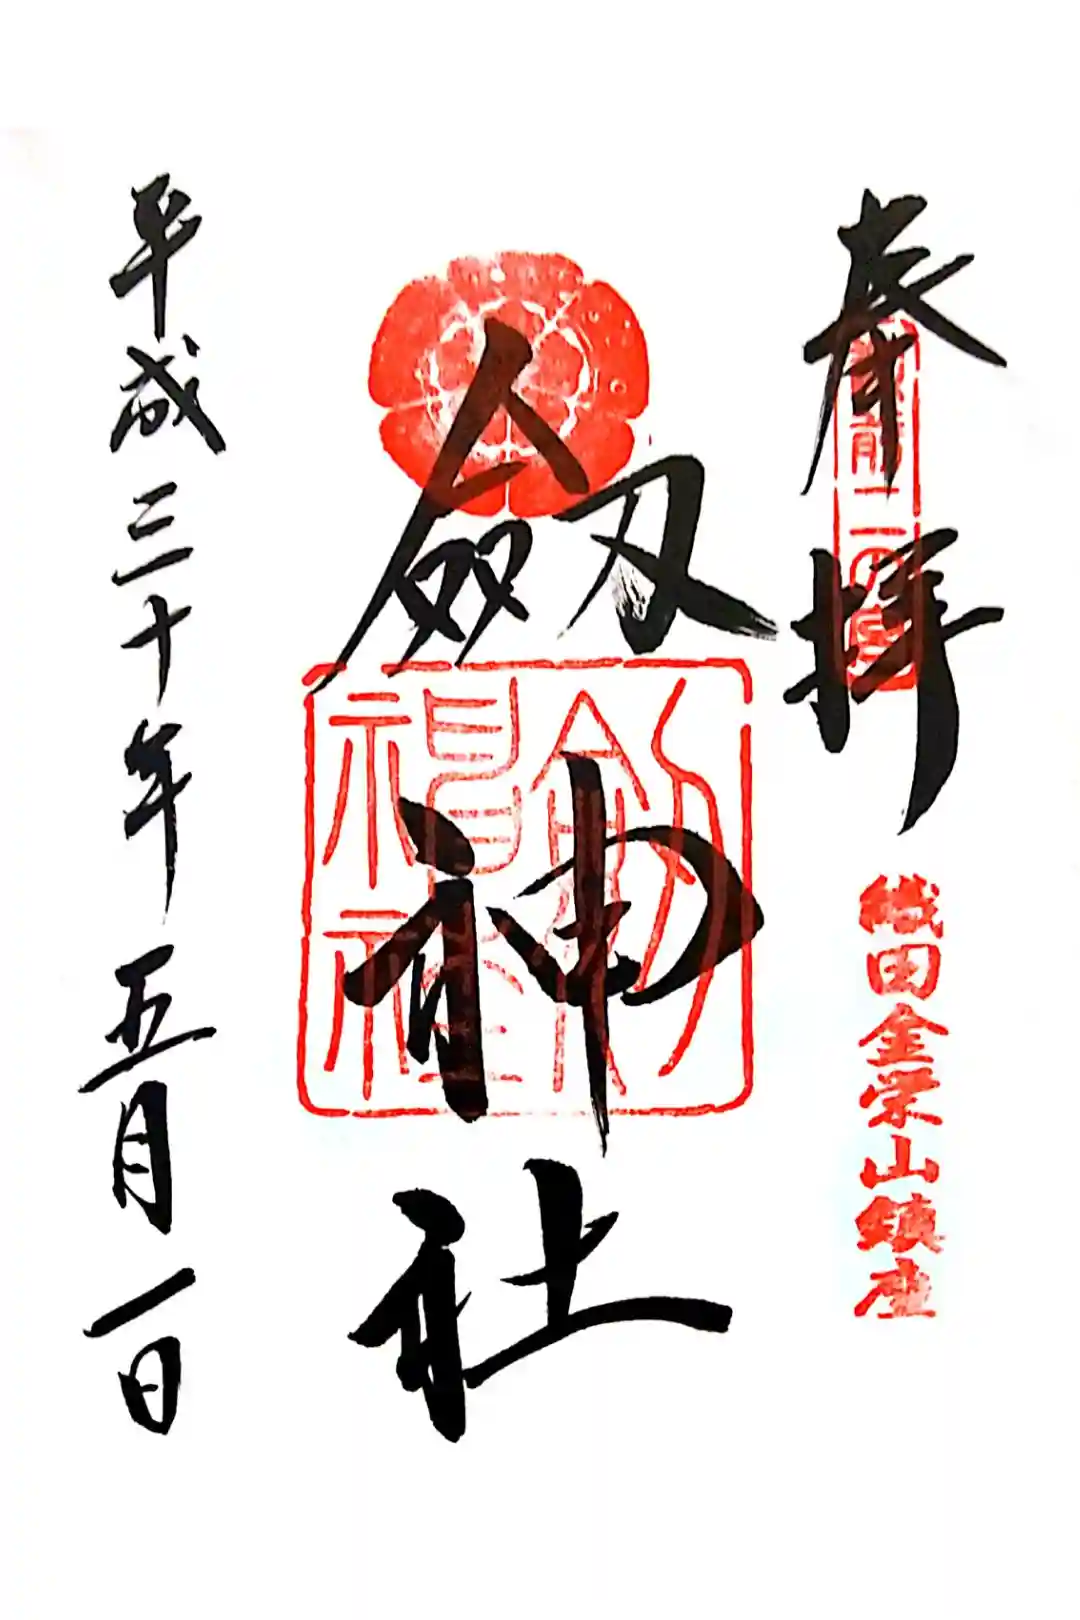 奉拝
越前二の宮
織田金栄山鎮座
劔神社
劔神社
平成三十年五月一日